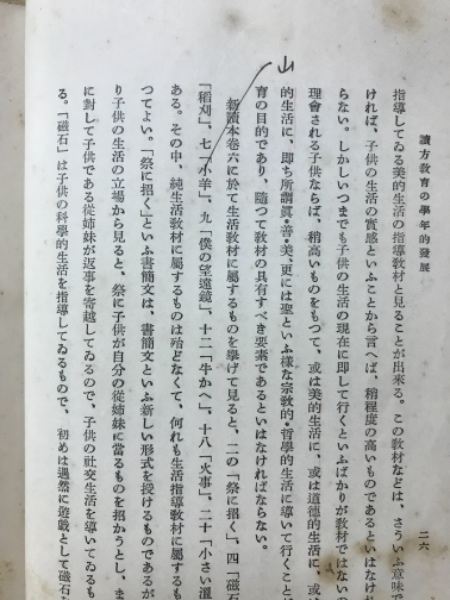 讀方教育の學年的發展
二六
指導してゐる美的生活の指導教材と見ることが出來る。この教材などは、さういふ意味で
ければ、子供の生活の實感といふことから言へば、稍程度の高いものであるといはなけれ
らない。しかしいつまでも子供の生活の現在に即して行くといふばかりが教材ではないの
理會される子供ならば、稍高いものをもつて、或は美的生活に、或は道德的生活に、或は
的生活に、即ち所謂眞・善・美、更には聖といふ樣な宗教的・哲學的生活に導いて行くこと
育の目的であり、隨つて教材の具有すべき要素であるといはなければならない。
山
新讀本卷六に於て生活教材に屬するものを擧げて見ると、二の「祭に招く」、四「磁石
「稻刈」、七「小羊」、九「僕の望遠鏡」、十二「牛かへ」、十八「火事」、二十「小さい溫
ある。その中、純生活教材に屬するものは殆どなくて、何れも生活指導教材に屬するも
つてよい。「祭に招く」といふ書簡文は、書簡文といふ新しい形式を授けるものであるが
り子供の生活の立場から見ると、祭に子供が自分の從姉妹に當るものを招かうとし、ま
に對して子供である從姉妹が返事を寄越してゐるので、子供の社交生活を導いてゐるも
る。「磁石」は子供の科學的生活を指導してゐるもので、初めは遇然に遊戲として磁石